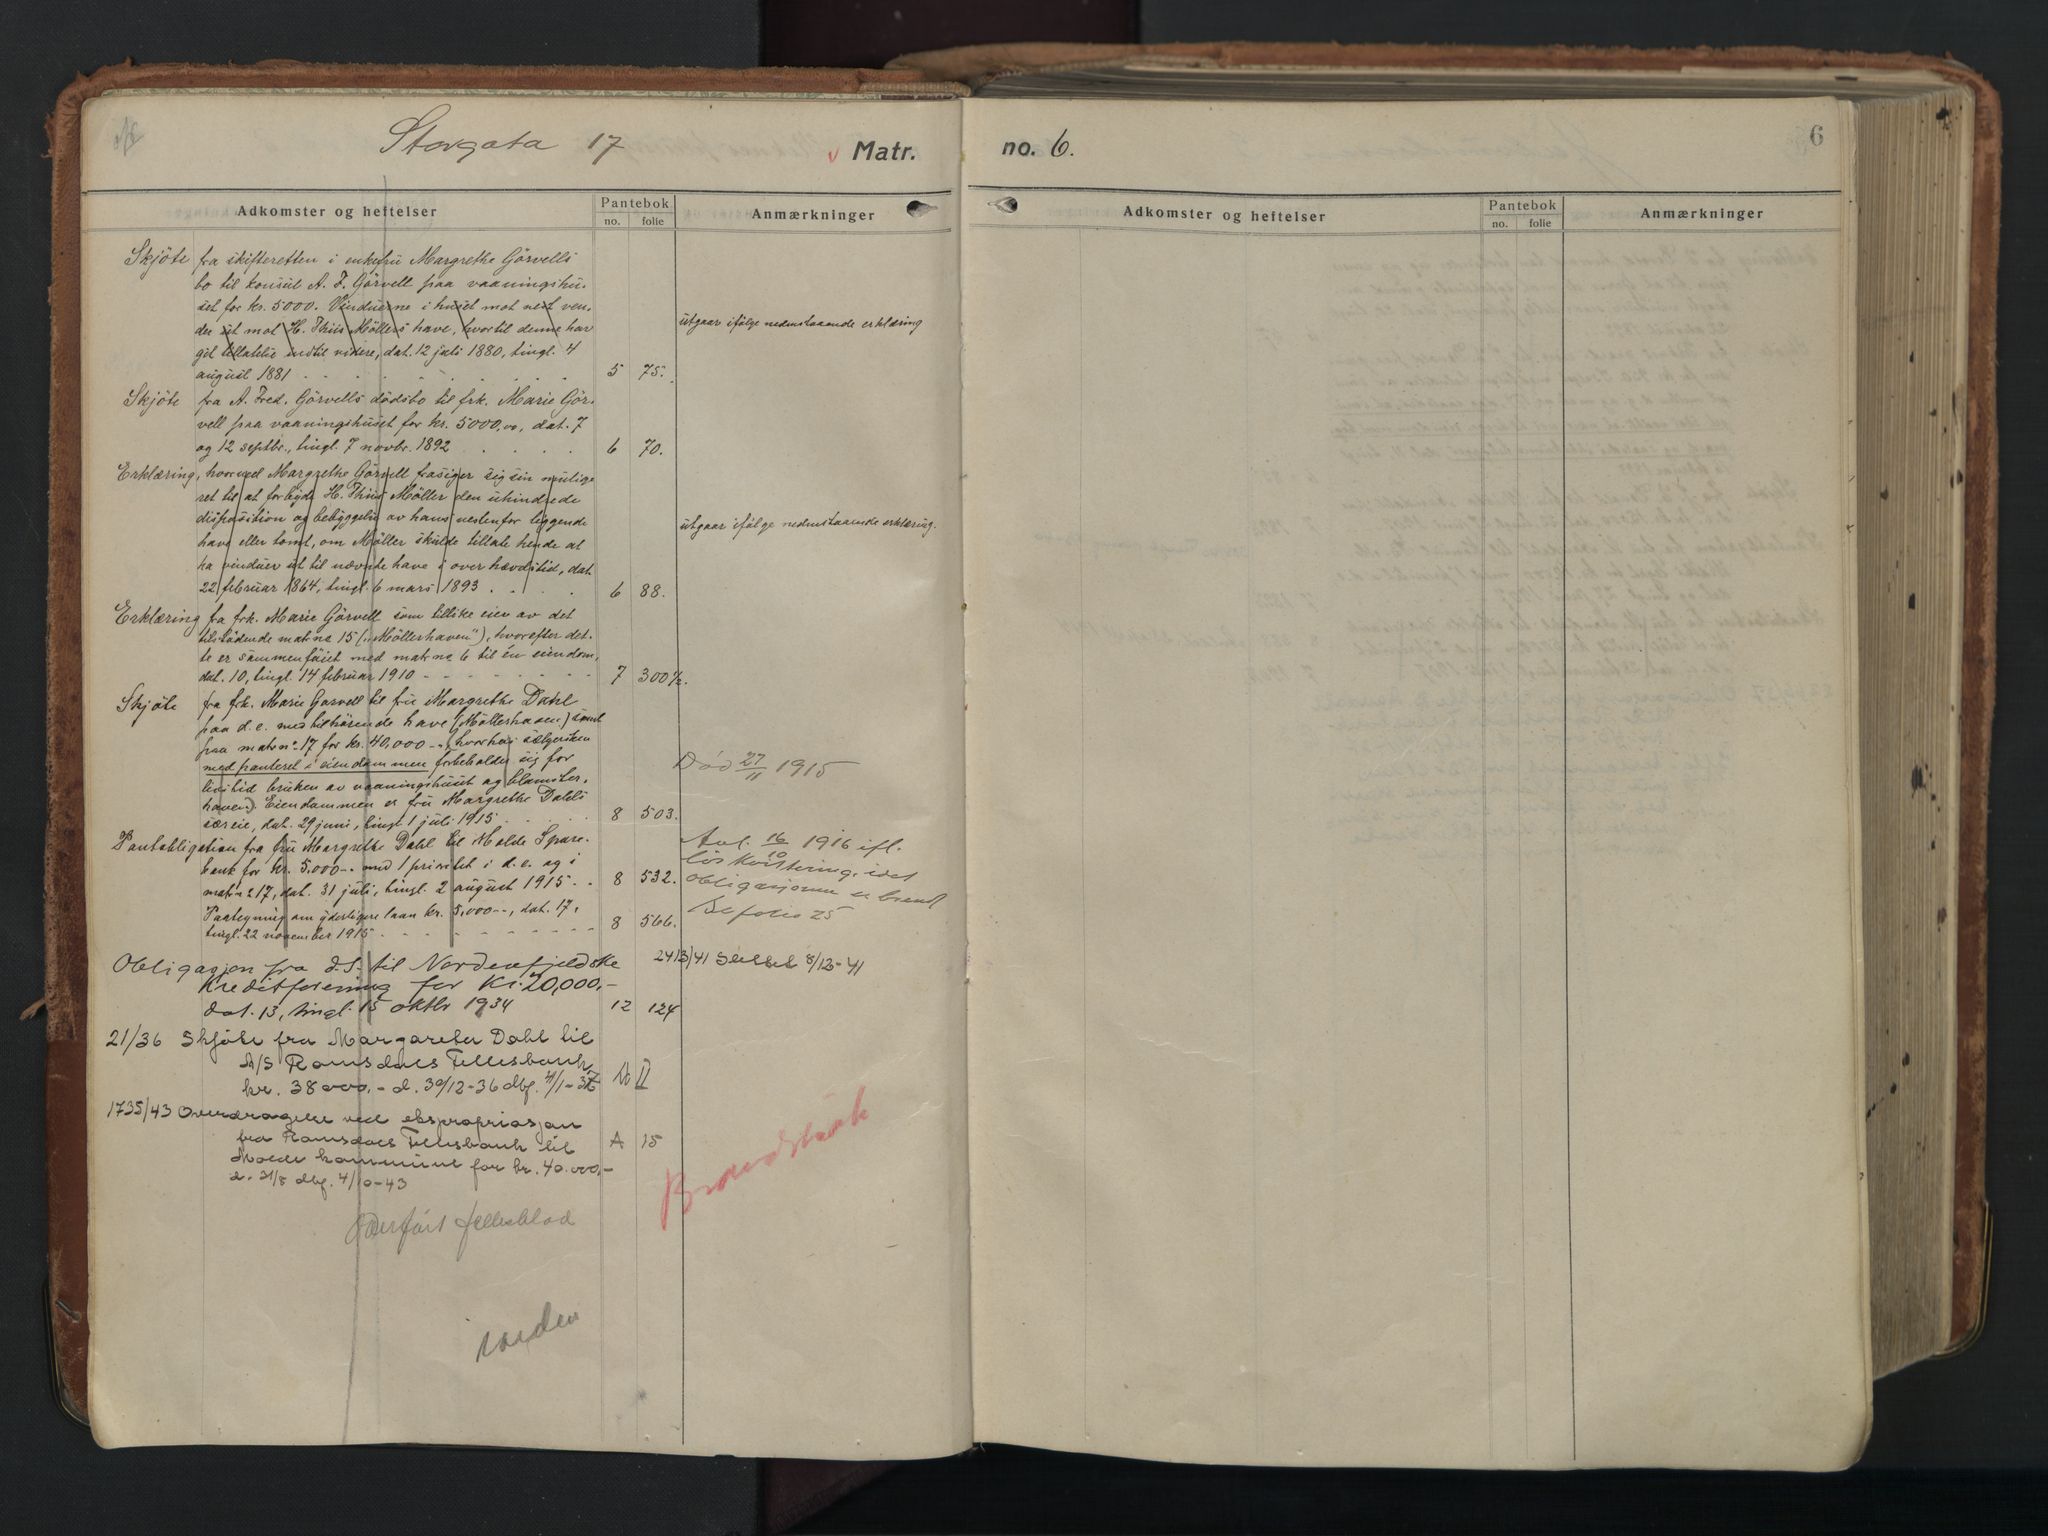 Storgata 17
v Matr.
no. 6.
6
Adkomster og heftelser
Pantebok
no. folie
Anmærkninger
Adkomster og heftelser
Pantebok
no. folie
Anmærkninger
Skjöte fra skifteretten i enkefru Margrethe Görvells
bo til konsul A. F. Görvell paa vaaningshu-
set for kr. 5000. Vinduerne i huset mot nest ven-
der ut mot H. Thiis Möllers have, hvortil denne har
git tillatelse indtil videre, dat. 12 juli 1880, tingl. 4
august 1881 5 75.
utgaar ifölge nedenstaaende erklæring
Skjöte fra A. Fred. Görvells dödsbo til frk. Marie Gör-
vell paa vaaningshuset for kr. 5000,00, dat. 7
og 12 septbr., tingl. 7 novbr. 1892 6 70.
Erklæring, hvorved Margrethe Görvell frasiger sig sin mulige
ret til at forbyde H. Thiis Möller den uhindrede
disposition og bebyggelse av hans nestenfor liggende
have eller tomt, om Möller skulde tillate hende at
ha vinduer ut til nævnte have i over hævdstid, dat.
22 februar 1864, tingl. 6 mars 1893 6 88.
utgaar ifölge nedenstaaende erklæring.
Erklæring fra frk. Marie Görvell som tillike eier av det
tilstödende matr no 15 („Möllerhaven"), hvorefter det-
te er sammenföiet med matr no 6 til én eiendom,
dat. 10, tingl. 14 februar 1910 7 300½.
Skjöte fra frk. Marie Gørvell til fru Margrethe Dahl
paa d. e. med tilhörende have (Möllerhaven) samt
paa matr no. 17 for kr. 40,000 -, (hvorhos sælgersken
med panteret i eiendommen forbeholder sig for
livstid bruken av vaaningshuset og blomster-
haven). Eiendommen er fru Margrethe Dahls
særeie, dat. 29 juni, tingl 1 juli 1915 8 503.
Död 27/11 1915
Pantobligation fra fru Margrethe Dahl til Molde Spare-
bank for kr. 5,000 -. med 1 prioritet i d. e. og i
matr no 17, dat. 31 juli, tingl. 2 august 1915 8 532.
Avl. 16/10 1916 ifl.
løs kvittering, idet
obligasjonen er brent
Se folio 25
Paategning om yderligere laan kr. 5,000 --, dat. 17,
tingl. 22 november 1915 8 566.
Obligasjon fra d. S. til Nordenfjeldske
Kreditforening for Kr. 20,000,-
dat. 13, tingl. 15 oktbr 1934 12 124
2413/41 Slettet 8/12-41
21/36 Skjöte fra Margarete Dahl til
A/S Romsdals Fellesbank
kr. 38000,- d. 30/12-36 dbf. 4/1-37
1735/43 Overdragelse ved ekspropriasjon
fra Romsdals Fellesbank til
Molde kommune for kr. 40.000,-
d. 31/8 dbf. 4/10-43
A 15
Brandstrøk
Overført fellesblad